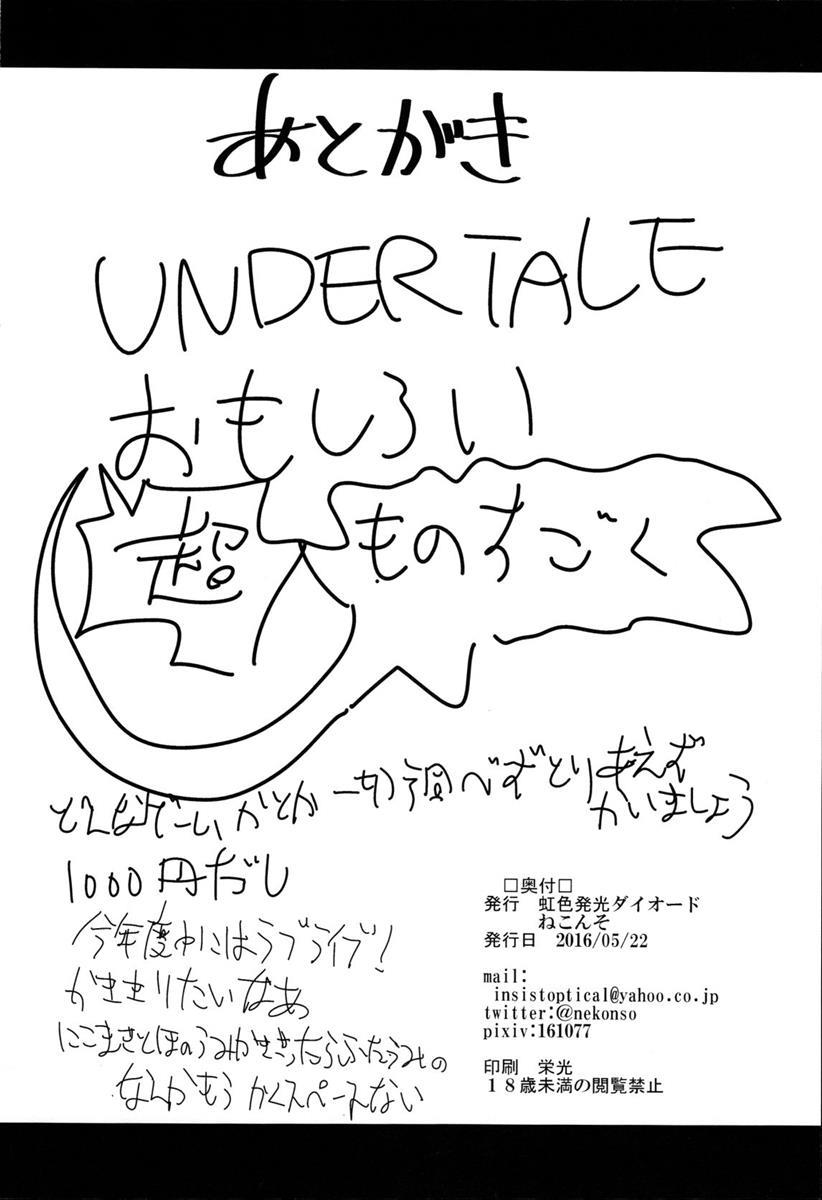 あとがき
UNDERTALE
おもしろい
超
ものすごく
どんなげーむかとか一切調べずとりあえず
かいましょう
1000円だし
今年度中にはラブライブ!
かききりたいなあ
にこまきとほのうみかききったらふたうみの
なんかもうかくスペースない
□奥付□
発行 虹色発光ダイオード
ねこんそ
発行日 2016/05/22
mail:
insistoptical@yahoo.co.jp
twitter:@nekonso
pixiv:161077
印刷 栄光
18歳未満の閲覧禁止